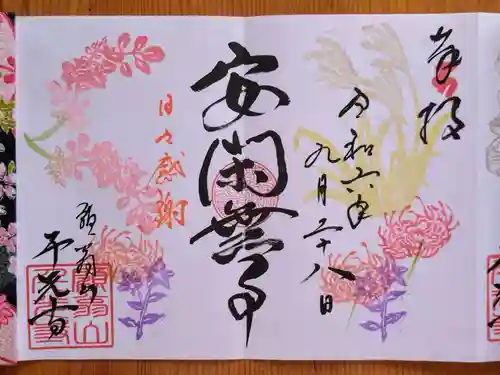 奉拝
令和六年
九月二十八日
安閑無事
日々感謝
平光寺